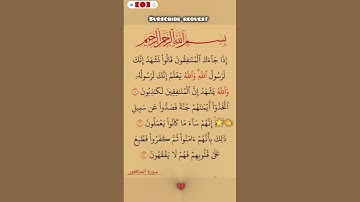 Subscribe request
بِسْمِ اللَّهِ الرَّحْمَٰنِ الرَّحِيمِ
إِذَا جَاءَكَ الْمُنَافِقُونَ قَالُوا نَشْهَدُ إِنَّكَ
لَرَسُولُ اللَّهِ وَاللَّهُ يَعْلَمُ إِنَّكَ لَرَسُولُهُ
وَاللَّهُ يَشْهَدُ إِنَّ الْمُنَافِقِينَ لَكَاذِبُونَ ١
اتَّخَذُوا أَيْمَانَهُمْ جُنَّةً فَصَدُّوا عَن سَبِيلِ
إِنَّهُمْ سَاءَ مَا كَانُوا يَعْمَلُونَ ٢
ذَٰلِكَ بِأَنَّهُمْ آمَنُوا ثُمَّ كَفَرُوا فَطُبِعَ
عَلَىٰ قُلُوبِهِمْ فَهُمْ لَا يَفْقَهُونَ ٣
سورة المنافقون